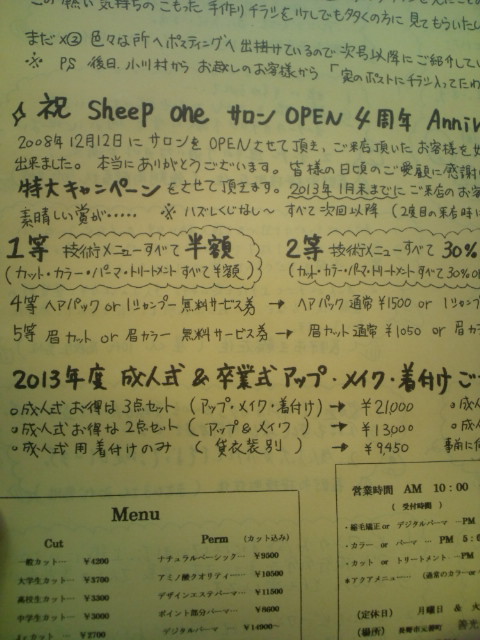 の熱い気持ちのこもった手作りチラシを少しでも多くの方に見てもらいたい
まだまだ色々な所へポスティングへ出掛けているので次号以降にご紹介してい
※ PS 後日、小川村からお越しのお客様から「家のポストにチラシ入ってたわ
祝 Sheep one サロン OPEN 4周年 Anniv
2008年12月12日にサロンをOPENさせて頂き、ご来店頂いたお客様を
出来ました。本当にありがとうございます。皆様の日頃のご愛顧に感謝
特大キャンペーンをさせて頂きます。2013年1月末までにご来店のお客
素晴しい賞が‥‥‥ ※ハズレくじなし〜 すべて次回以降(2度目の来店時に
1等 技術メニューすべて半額
(カット・カラー・パーマ・トリートメントすべて半額)
2等 技術メニューすべて30%
(カット・カラー・パーマ・トリートメントすべて30%O
4等 ヘアパック or 1シャンプー 無料サービス券 → ヘアパック通常¥1500 or 1シャンプ
5等 眉カット or 眉カラー 無料サービス券 → 眉カット通常¥1050 or 眉カ
2013年度 成人式&卒業式アップ・メイク・着付けご
○成人式お得な3点セット (アップ・メイク・着付け) → ¥21,000 ○成人
○成人式お得な2点セット (アップ&メイク) → ¥13,000 ○成人
○成人式用着付けのみ (貸衣装別) → ¥9,450 事前に
Menu
Cut
一般カット… ¥4200
大学生カット… ¥3700
高校生カット… ¥3300
中学生カット… ¥3000
¥2700
Perm (カット込み)
ナチュラルベーシック… ¥9500
アミノ酸クオリティー… ¥10500
デザインエステパーマ… ¥11500
ポイント部分パーマ… ¥8600
デジタルパーマ … ¥14900〜
営業時間 AM 10:00
(受付時間)
・縮毛矯正 or デジタルパーマ …PM
・カラー or パーマ … PM 5:0
・カット or トリートメント…PM
*アクアメニュー… (通常のカラー or
(定休日) 月曜日 & 火
(場所) 長野市元善町 善光